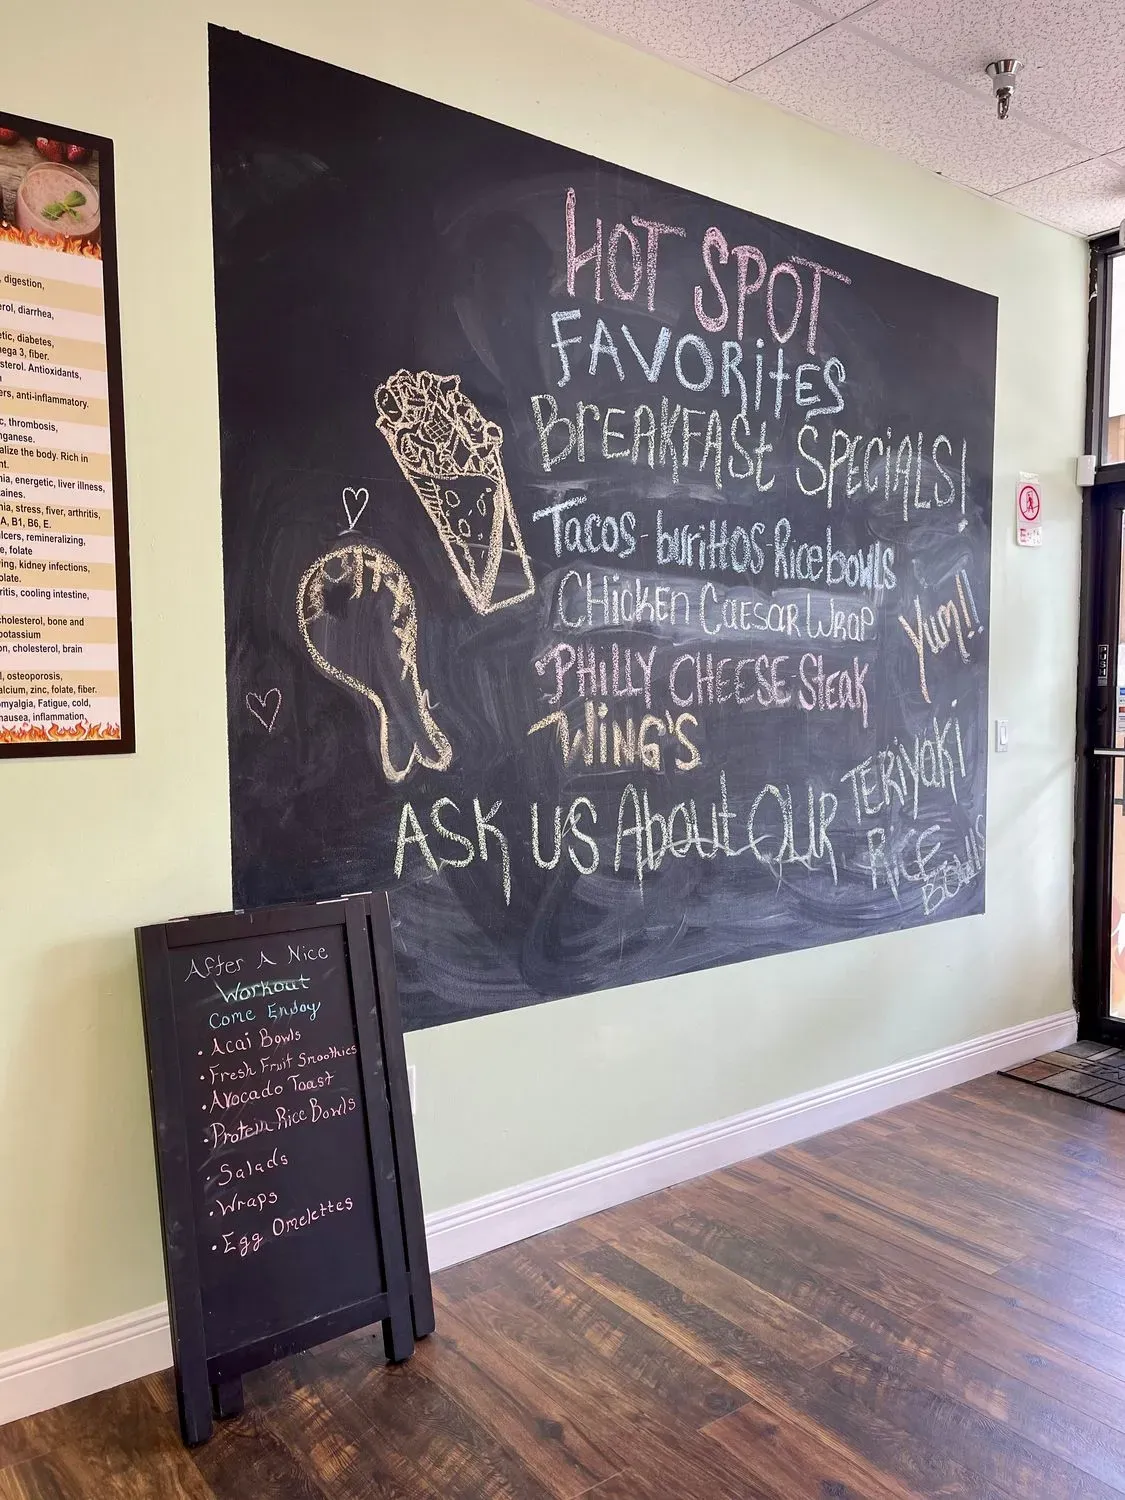 , digestion,
erol, diarrhea,
etic, diabetes,
ega 3, fiber.
sterol. Antioxidants,
ers, anti-inflammatory.
c, thrombosis,
nganese.
alize the body. Rich in
nt.
nia, energetic, liver illness,
aines.
nia, stress, fiver, arthritis,
A, B1, B6, E.
lcers, remineralizing,
e, folate
ing, kidney infections,
olate.
ritis, cooling intestine,
cholesterol, bone and
potassium
on, cholesterol, brain
l, osteoporosis,
alcium, zinc, folate, fiber.
omyalgia, Fatigue, cold,
nausea, inflammation,
HOT SPOT
FAVORitES
BrEAKFASt SPECiALS!
Tacos-burittos-Ricebowls
CHicKEN CAESAR WRAP
PHILLY CHEESE Steak
WiNG'S
Yum!!
ASK US About OUR TERiYAKi
RiCE
BOWlS
After A Nice
Workout
Come Enjoy
• Acai Bowls
• Fresh Fruit Smoothies
• Avocado Toast
• Protein Rice Bowls
• Salads
• Wraps
• Egg Omelettes